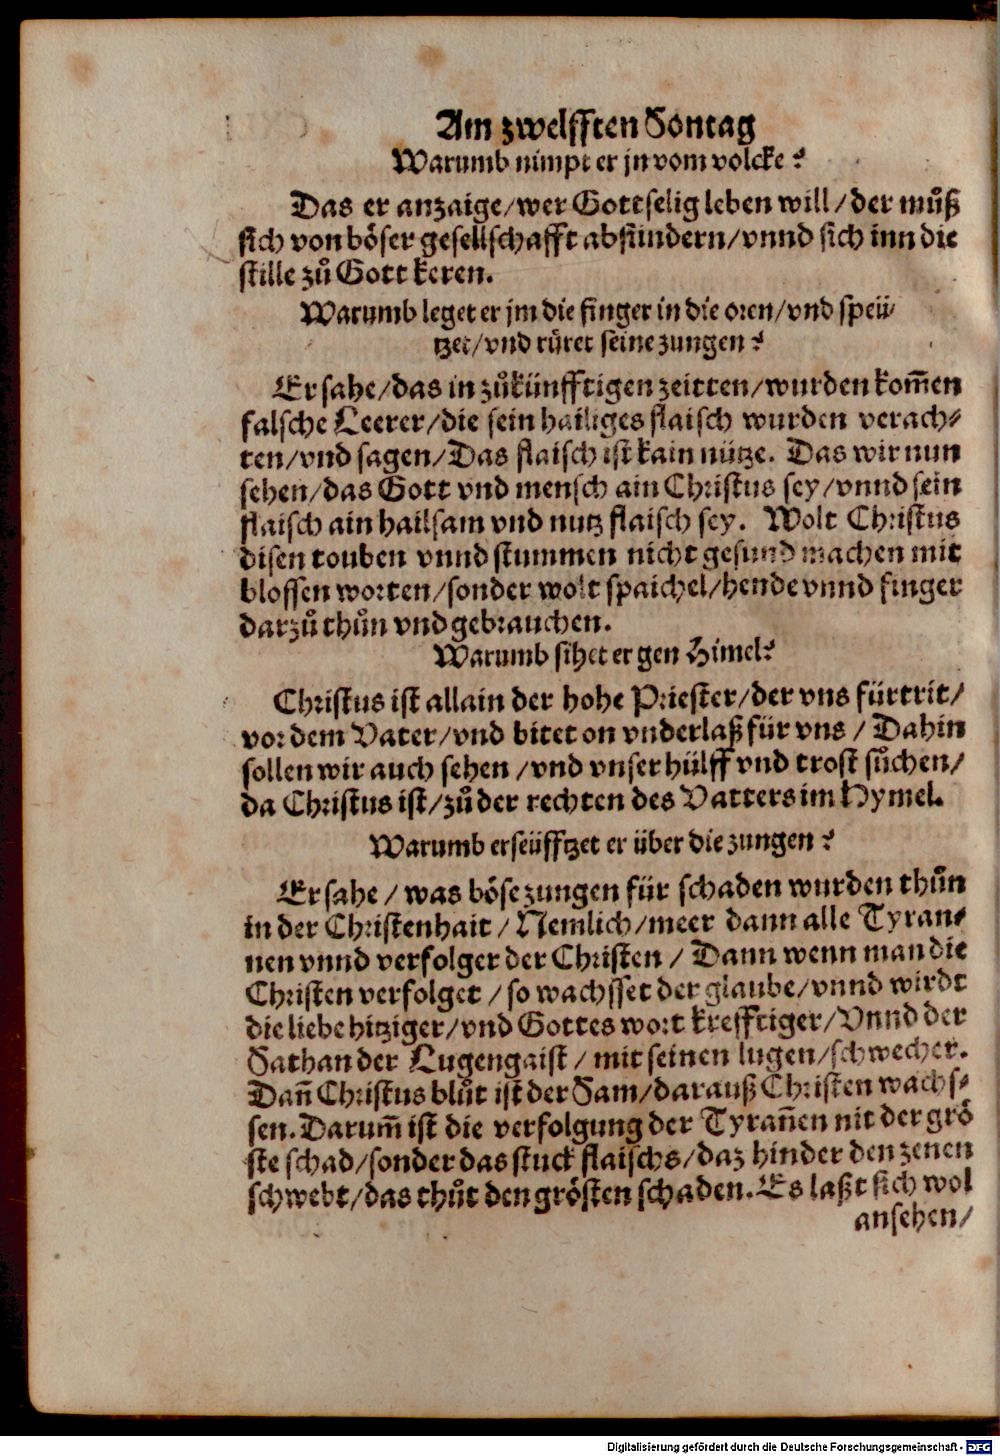 Am zwelfften Sontag
Warumb nimpt er jn vom volcke?
Das er anzaige/wer Gottselig leben will/der můß
sich von böser gesellschafft absündern/vnnd sich inn die
stille zů Gott keren.
Warumb leget er jm die finger in die oren/vnd speü/
tzet/vnd rüret seine zungen?
Er sahe/das in zůkünfftigen zeitten/wurden kom̃en
falsche Leerer/die sein hailiges flaisch wurden verach⸗
ten/vnd sagen/Das flaisch ist kain nütze. Das wir nun
sehen/das Gott vnd mensch ain Christus sey/vnnd sein
flaisch ain hailsam vnd nutz flaisch sey. Wolt Christus
disen touben vnnd stummen nicht gesund machen mit
blossen worten/sonder wolt spaichel/hende vnnd finger
darzů thůn vnd gebrauchen.
Warumb sihet er gen Himel?
Christus ist allain der hohe Priester/der vns fürtrit/
vor dem Vater/vnd bitet on vnderlaß für vns / Dahin
sollen wir auch sehen /vnd vnser hülff vnd trost sůchen/
da Christus ist/zů der rechten des Vatters im Hymel.
Warumb erseüfftzet er über die zungen?
Er sahe / was böse zungen für schaden wurden thůn
in der Christenhait / Nemlich/meer dann alle Tyran⸗
nen vnnd verfolger der Christen / Dann wenn man die
Christen verfolget / so wachsset der glaube/vnnd wirdt
die liebe hitziger/vnd Gottes wort krefftiger/Vnnd der
Sathan der Lugengaist / mit seinen lugen/schwecher.
Dañ Christus blůt ist der Sam/darauß Christen wachs⸗
sen. Darum̃ ist die verfolgung der Tyrañen nit der grö
ste schad/sonder das stuck flaischs/daz hinder den zenen
schwebt/das thůt den grösten schaden. Es laßt sich wol
ansehen/
Digitalisierung gefördert durch die Deutsche Forschungsgemeinschaft - DFG